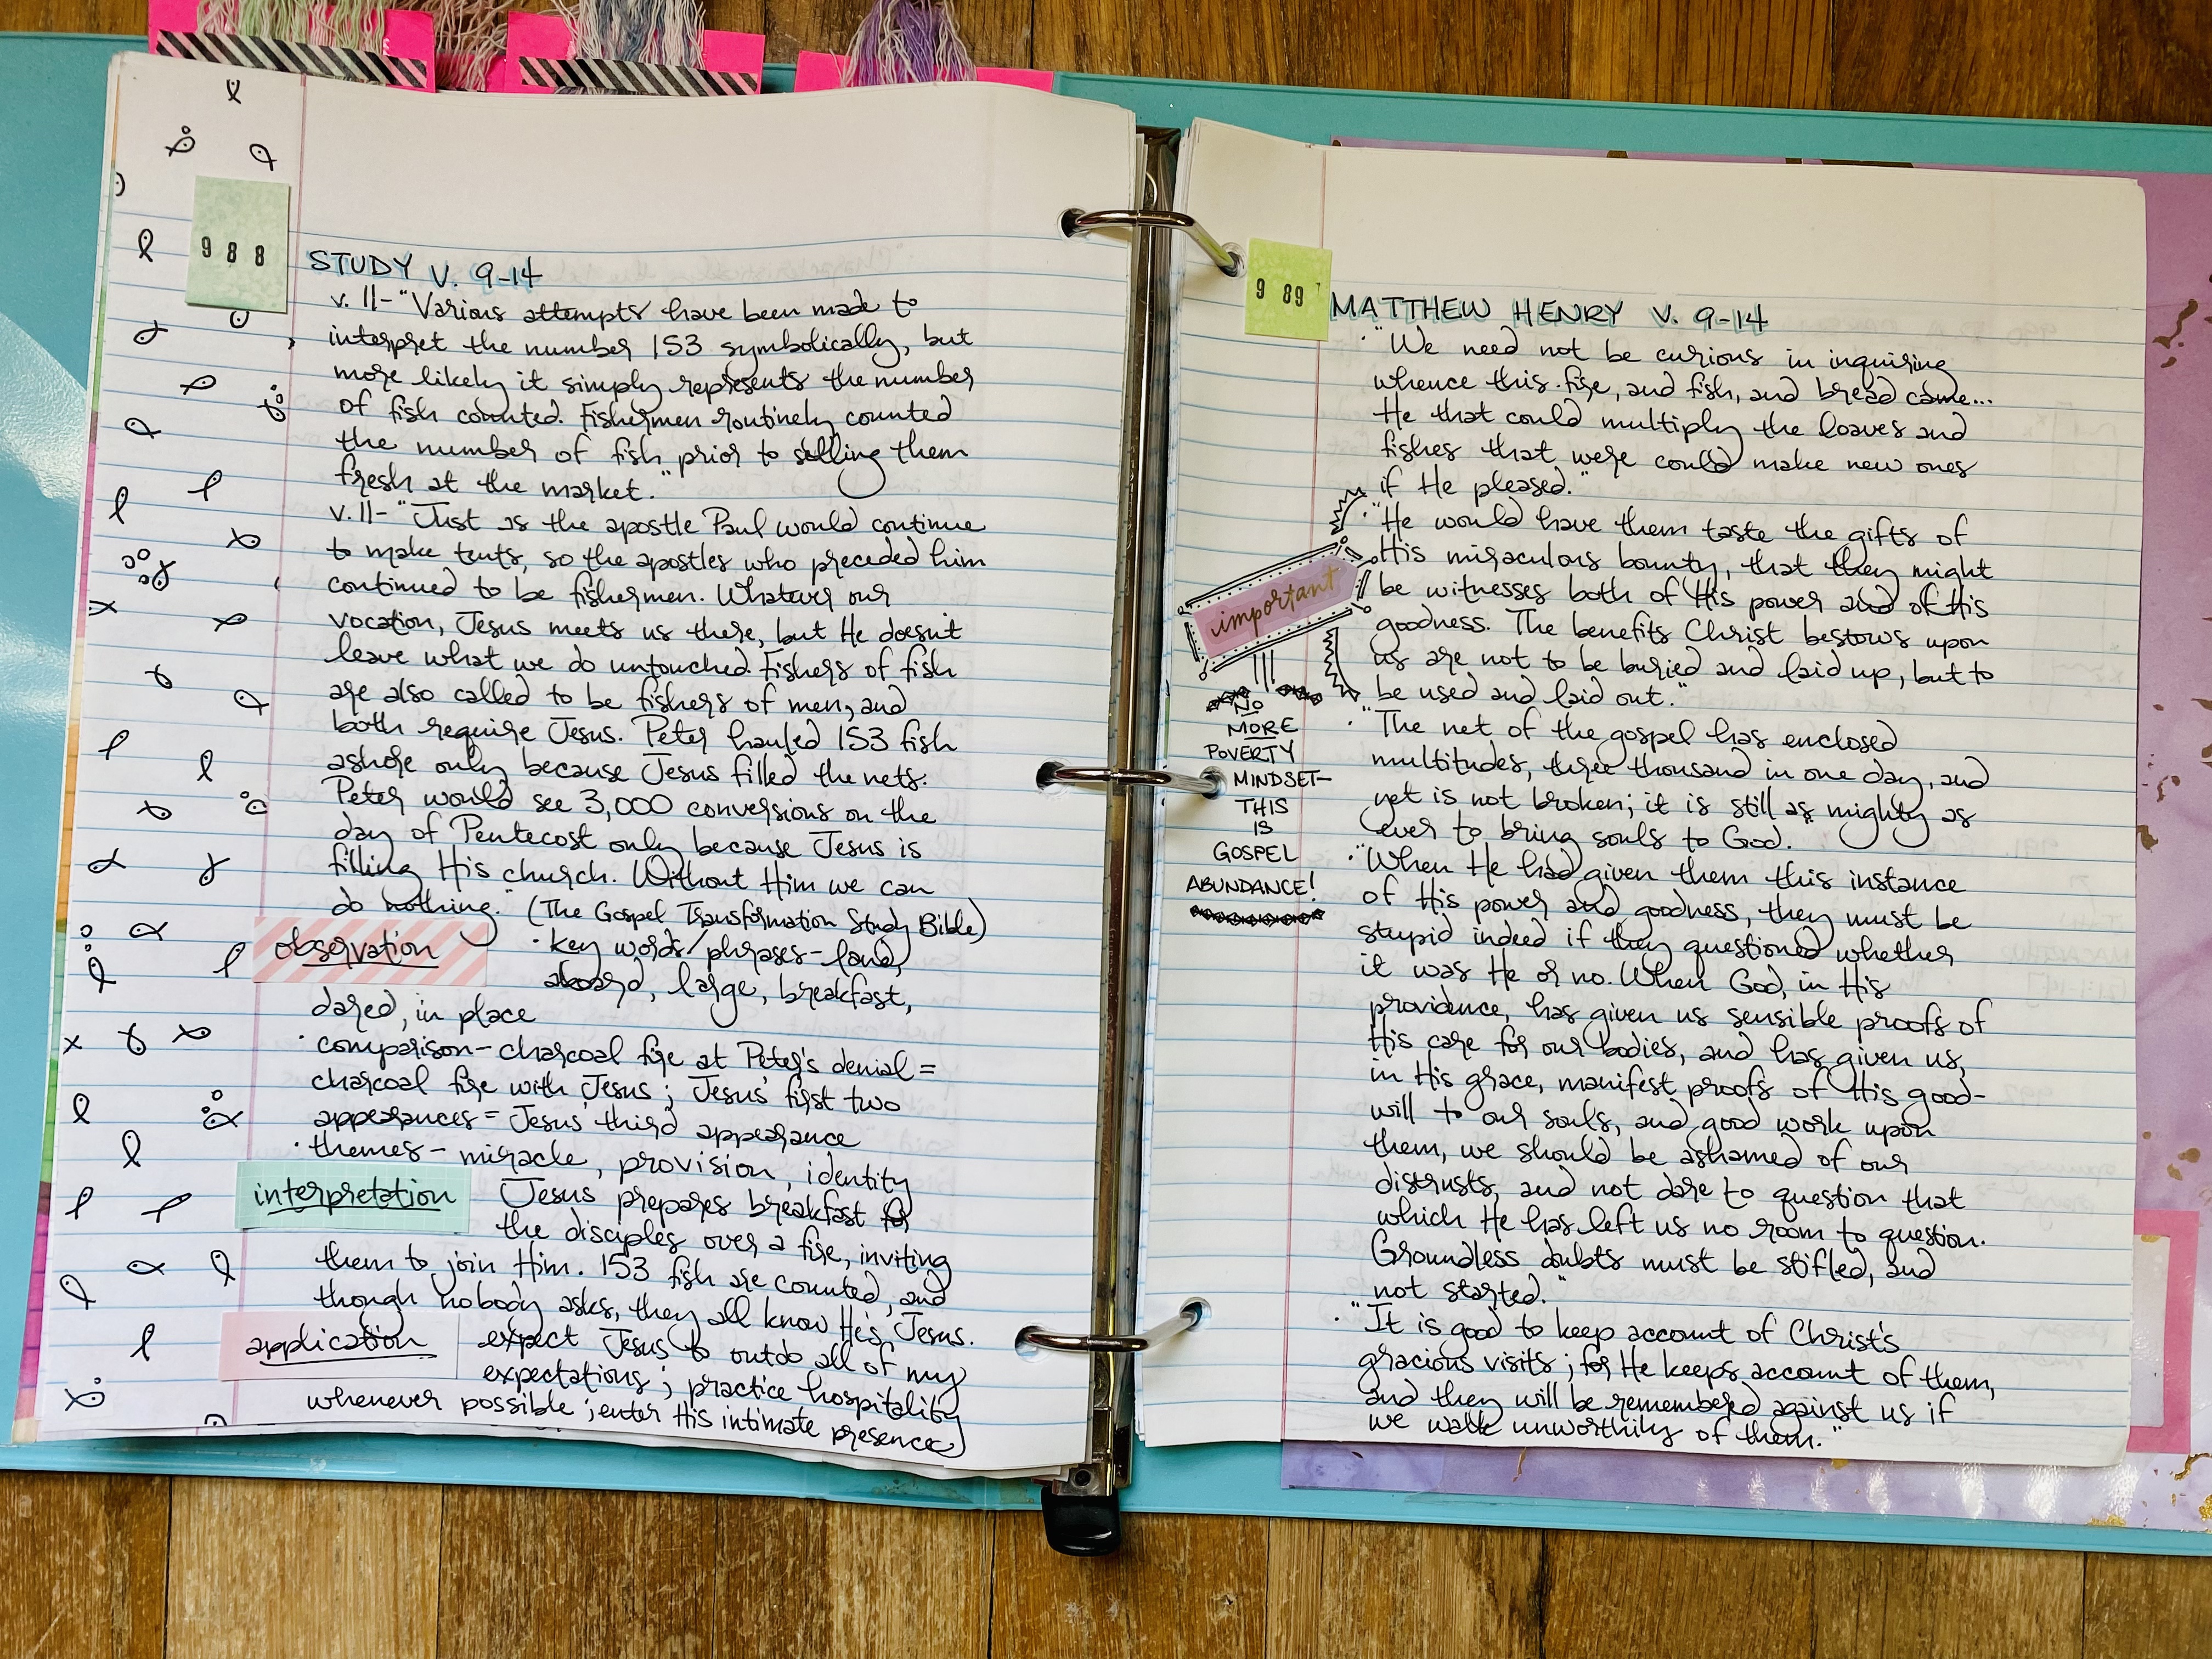 988
STUDY V. 9-14
v. 11- "Various attempts have been made to
interpret the number 153 symbolically, but
more likely it simply represents the number
of fish counted. Fishermen routinely counted
the number of fish prior to selling them
fresh at the market."
v. 11- "Just as the apostle Paul would continue
to make tents, so the apostles who preceded him
continued to be fishermen. Whatever our
vocation, Jesus meets us there, but He doesn't
leave what we do untouched. Fishers of fish
are also called to be fishers of men, and
both require Jesus. Peter hauled 153 fish
ashore only because Jesus filled the nets.
Peter would see 3,000 conversions on the
day of Pentecost only because Jesus is
filling His church. Without Him we can
do nothing." (The Gospel Transformation Study Bible)
observation
· key words/phrases - land,
aboard, large, breakfast,
dared, in place
· comparison - charcoal fire at Peter's denial =
charcoal fire with Jesus; Jesus' first two
appearances = Jesus' third appearance
· themes - miracle, provision, identity
interpretation
Jesus prepares breakfast for
the disciples over a fire, inviting
them to join Him. 153 fish are counted, and
though nobody asks, they all know He's Jesus.
application
expect Jesus to outdo all of my
expectations; practice hospitality
whenever possible; enter His intimate presence
989
MATTHEW HENRY V. 9-14
· "We need not be curious in inquiring
whence this fire, and fish, and bread came...
He that could multiply the loaves and
fishes that were could make new ones
if He pleased."
· "He would have them taste the gifts of
His miraculous bounty, that they might
be witnesses both of His power and of His
goodness. The benefits Christ bestows upon
us are not to be buried and laid up, but to
be used and laid out."
important
NO
MORE
POVERTY
MINDSET-
THIS
IS
GOSPEL
ABUNDANCE!
· "The net of the gospel has enclosed
multitudes, three thousand in one day, and
yet is not broken; it is still as mighty as
ever to bring souls to God.
· "When He had given them this instance
of His power and goodness, they must be
stupid indeed if they questioned whether
it was He or no. When God, in His
providence, has given us sensible proofs of
His care for our bodies, and has given us,
in His grace, manifest proofs of His good-
will to our souls, and good work upon
them, we should be ashamed of our
distrusts, and not dare to question that
which He has left us no room to question.
Groundless doubts must be stifled, and
not started."
· "It is good to keep account of Christ's
gracious visits; for He keeps account of them,
and they will be remembered against us if
we walk unworthily of them."